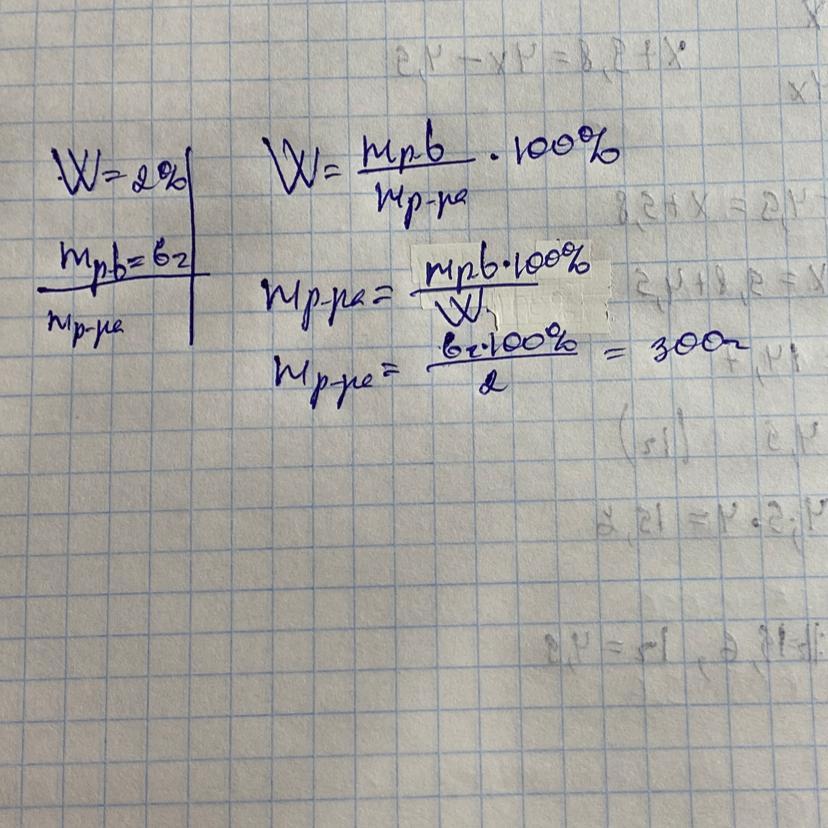 W = 2%
mр.в = 6г
mр-ра
W = mр.в / mр-ра · 100%
mр-ра = mр.в · 100% / W
mр-ра = 6г · 100% / 2 = 300г